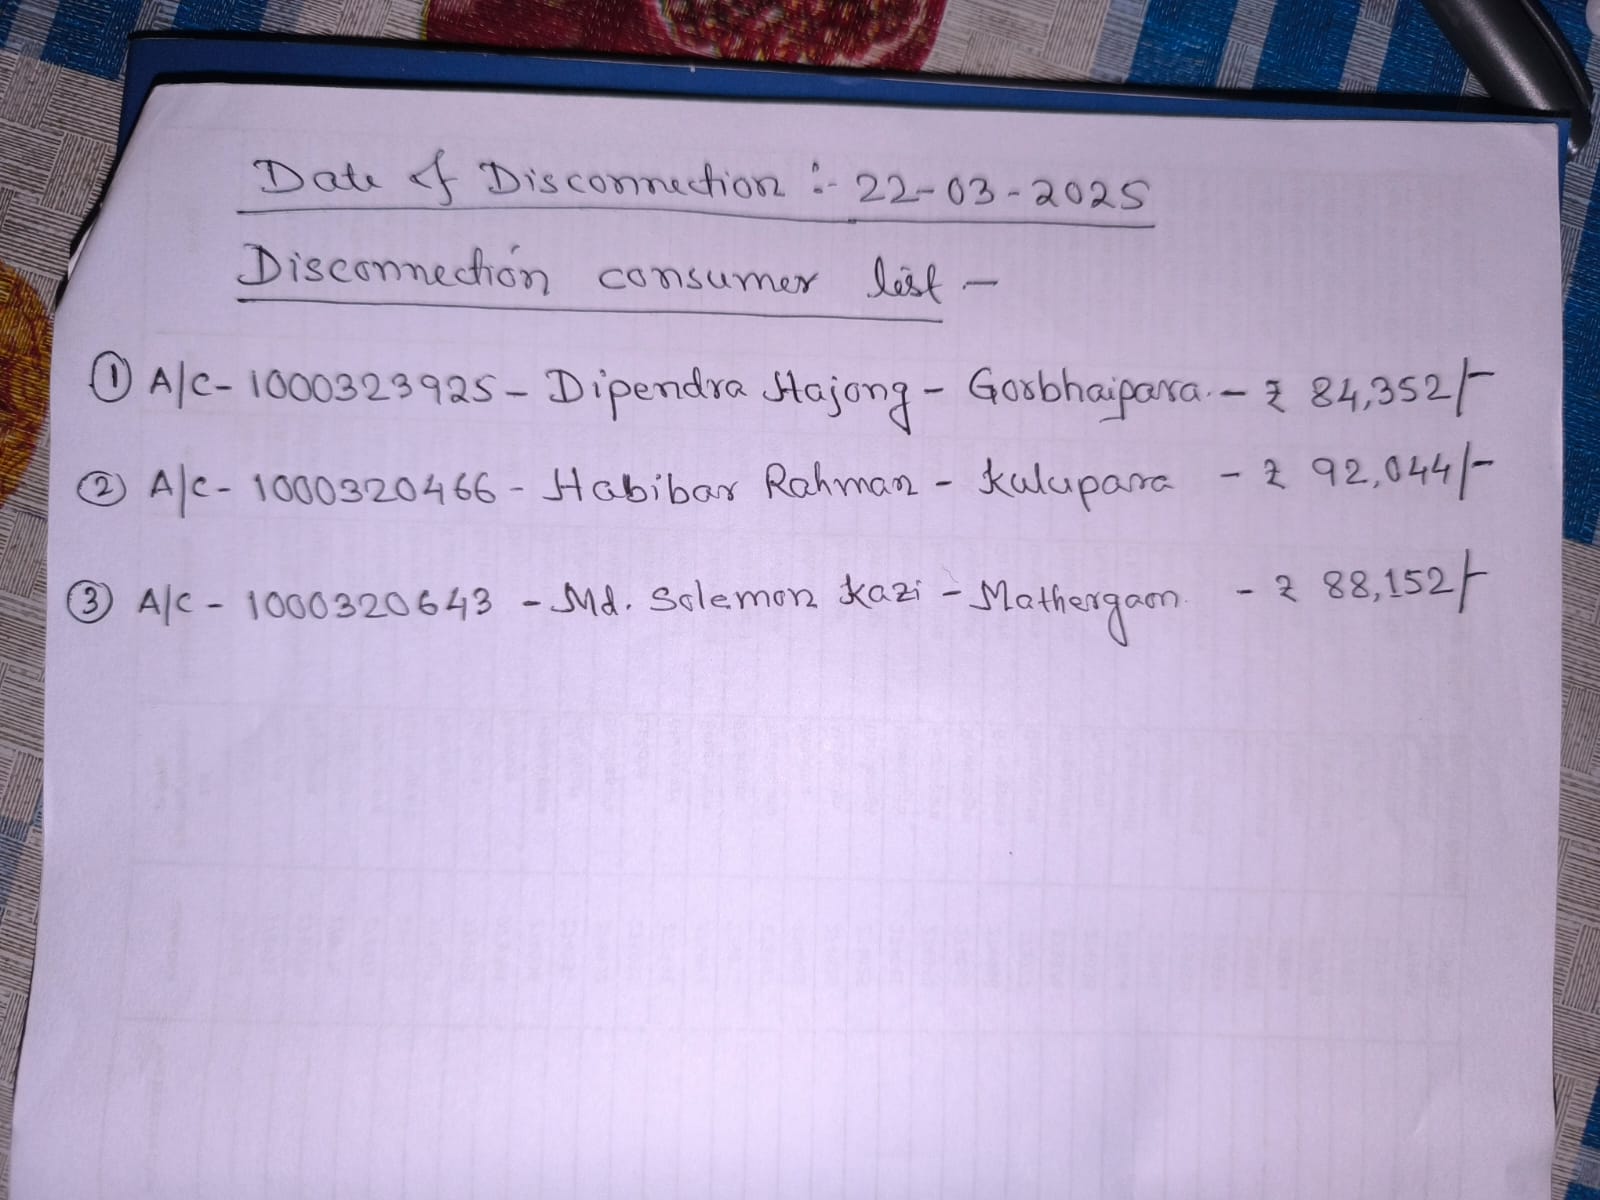 Date of Disconnection :- 22-03-2025
Disconnection consumer list -
① A/C- 1000323925 - Dipendra Hajong - Gorbhaipara. - ₹ 84,352/-
② A/C- 1000320466 - Habibar Rahman - Kulupara - ₹ 92,044/-
③ A/C - 1000320643 - Md. Solemon Kazi - Mathergaon. - ₹ 88,152/-